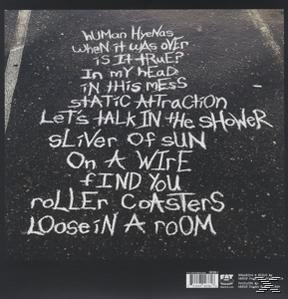 HUMAN HYENAS
WHEN IT WAS OVER
IS IT TRUE?
IN MY HEAD
IN THIS MESS
STATIC ATTRACTION
LET'S TALK IN THE SHOWER
SLIVER OF SUN
ON A WIRE
FIND YOU
ROLLER COASTERS
LOOSE IN A ROOM
FAT